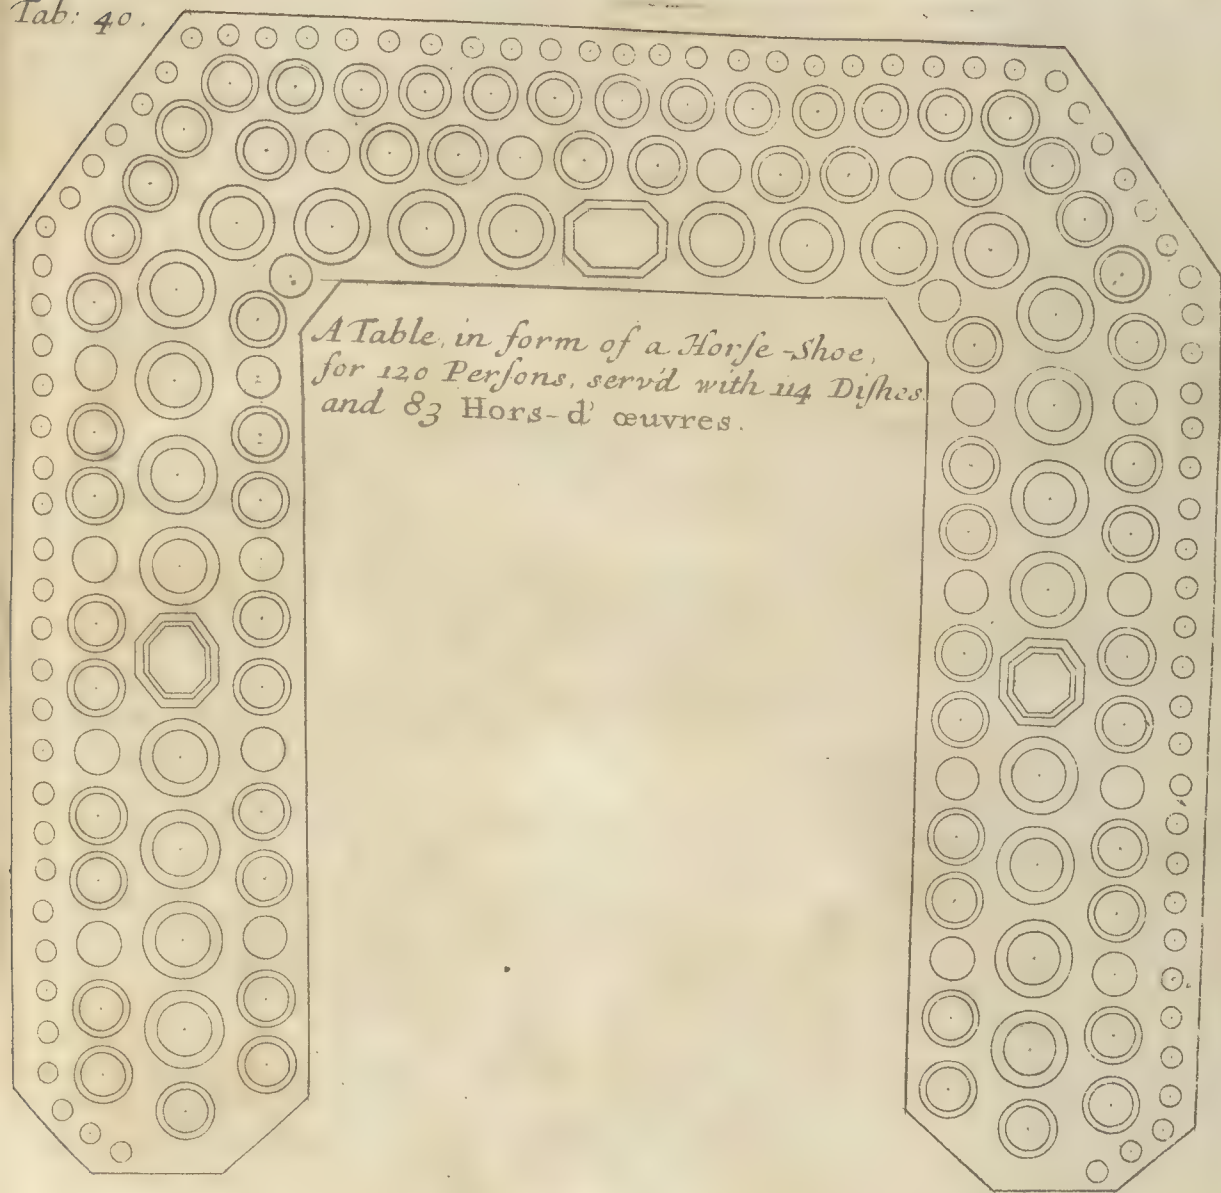 Tab: 40.
A Table, in form of a Horſe-Shoe,
for 120 Perſons, serv'd with 114 Diſhes
and 83 Hors-d' œuvres.